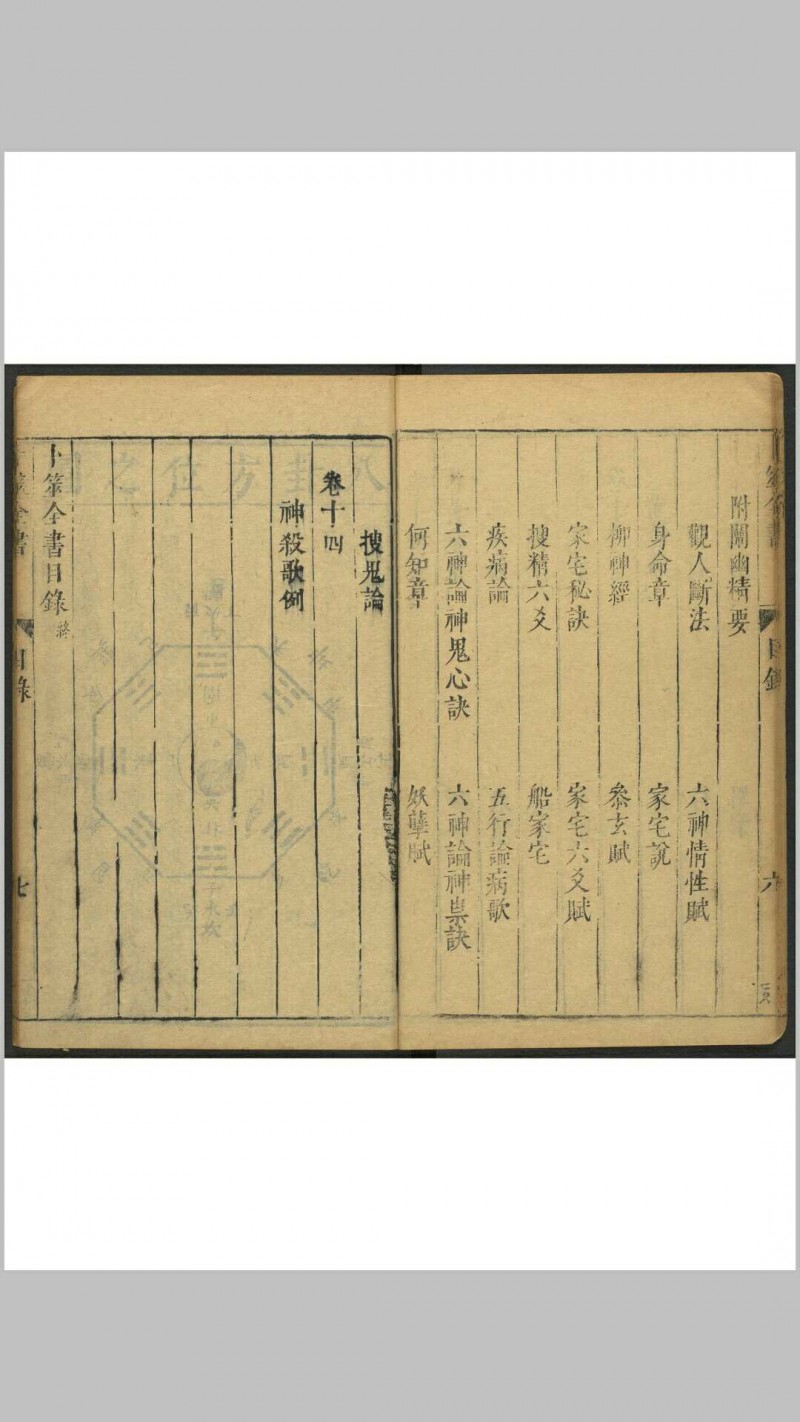 附闡幽精要
觀人斷法　六神情性賦
身命章　家宅說
柳神經　叅玄賦
家宅秘訣　家宅六爻賦
搜精六爻　船家宅
疾病論　五行論病歌
六神論神鬼心訣　六神論神祟訣
何知章　妖孽賦
目錄　六
搜鬼論
卷十四
神殺歌例
卜筮全書目錄 終
目錄　七